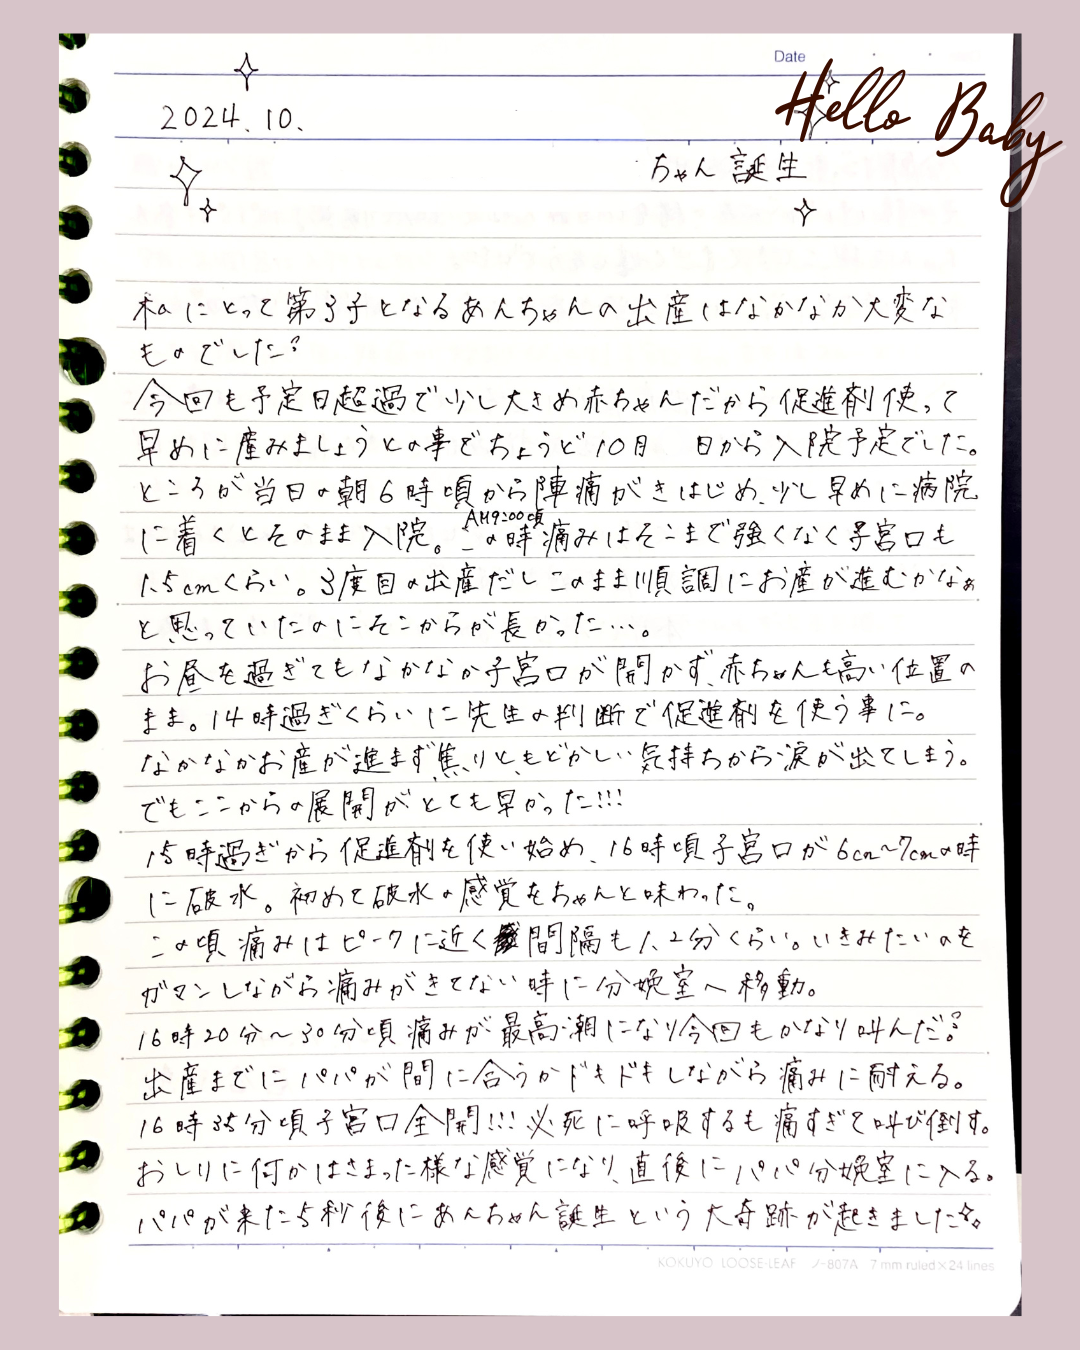 Date
Hello Baby
2024.10.
ちゃん誕生
私にとって第3子となるあんちゃんの出産はなかなか大変な
ものでした!
今回も予定日超過で少し大きめ赤ちゃんだから促進剤使って
早めに産みましょうとの事でちょうど10月 日から入院予定でした。
ところが当日の朝6時頃から陣痛がきはじめ、少し早めに病院
AM9:00頃
に着くとそのまま入院。この時痛みはそこまで強くなく子宮口も
1.5cmくらい。3度目の出産だしこのまま順調にお産が進むかなぁ
と思っていたのにそこからが長かった…。
お昼を過ぎてもなかなか子宮口が開かず、赤ちゃんも高い位置の
まま。14時過ぎくらいに先生の判断で促進剤を使う事に。
なかなかお産が進まず、焦りと、もどかしい気持ちから涙が出てしまう。
でもここからの展開がとても早かった!!!
15時過ぎから促進剤を使い始め、16時頃子宮口が6cm~7cmの時
に破水。初めて破水の感覚をちゃんと味わった。
この頃痛みはピークに近く間隔も1、2分くらい。いきみたいのを
ガマンしながら痛みがきてない時に分娩室へ移動。
16時20分~30分頃痛みが最高潮になり今回もかなり叫んだ!
出産までにパパが間に合うかドキドキしながら痛みに耐える。
16時35分頃子宮口全開!!!必死に呼吸するも痛すぎて叫び倒す。
おしりに何かはさまった様な感覚になり、直後にパパ分娩室に入る。
パパが来た5秒後にあんちゃん誕生という大奇跡が起きました
KOKUYO LOOSE-LEAF ノ-807A 7 mm ruled×24 lines